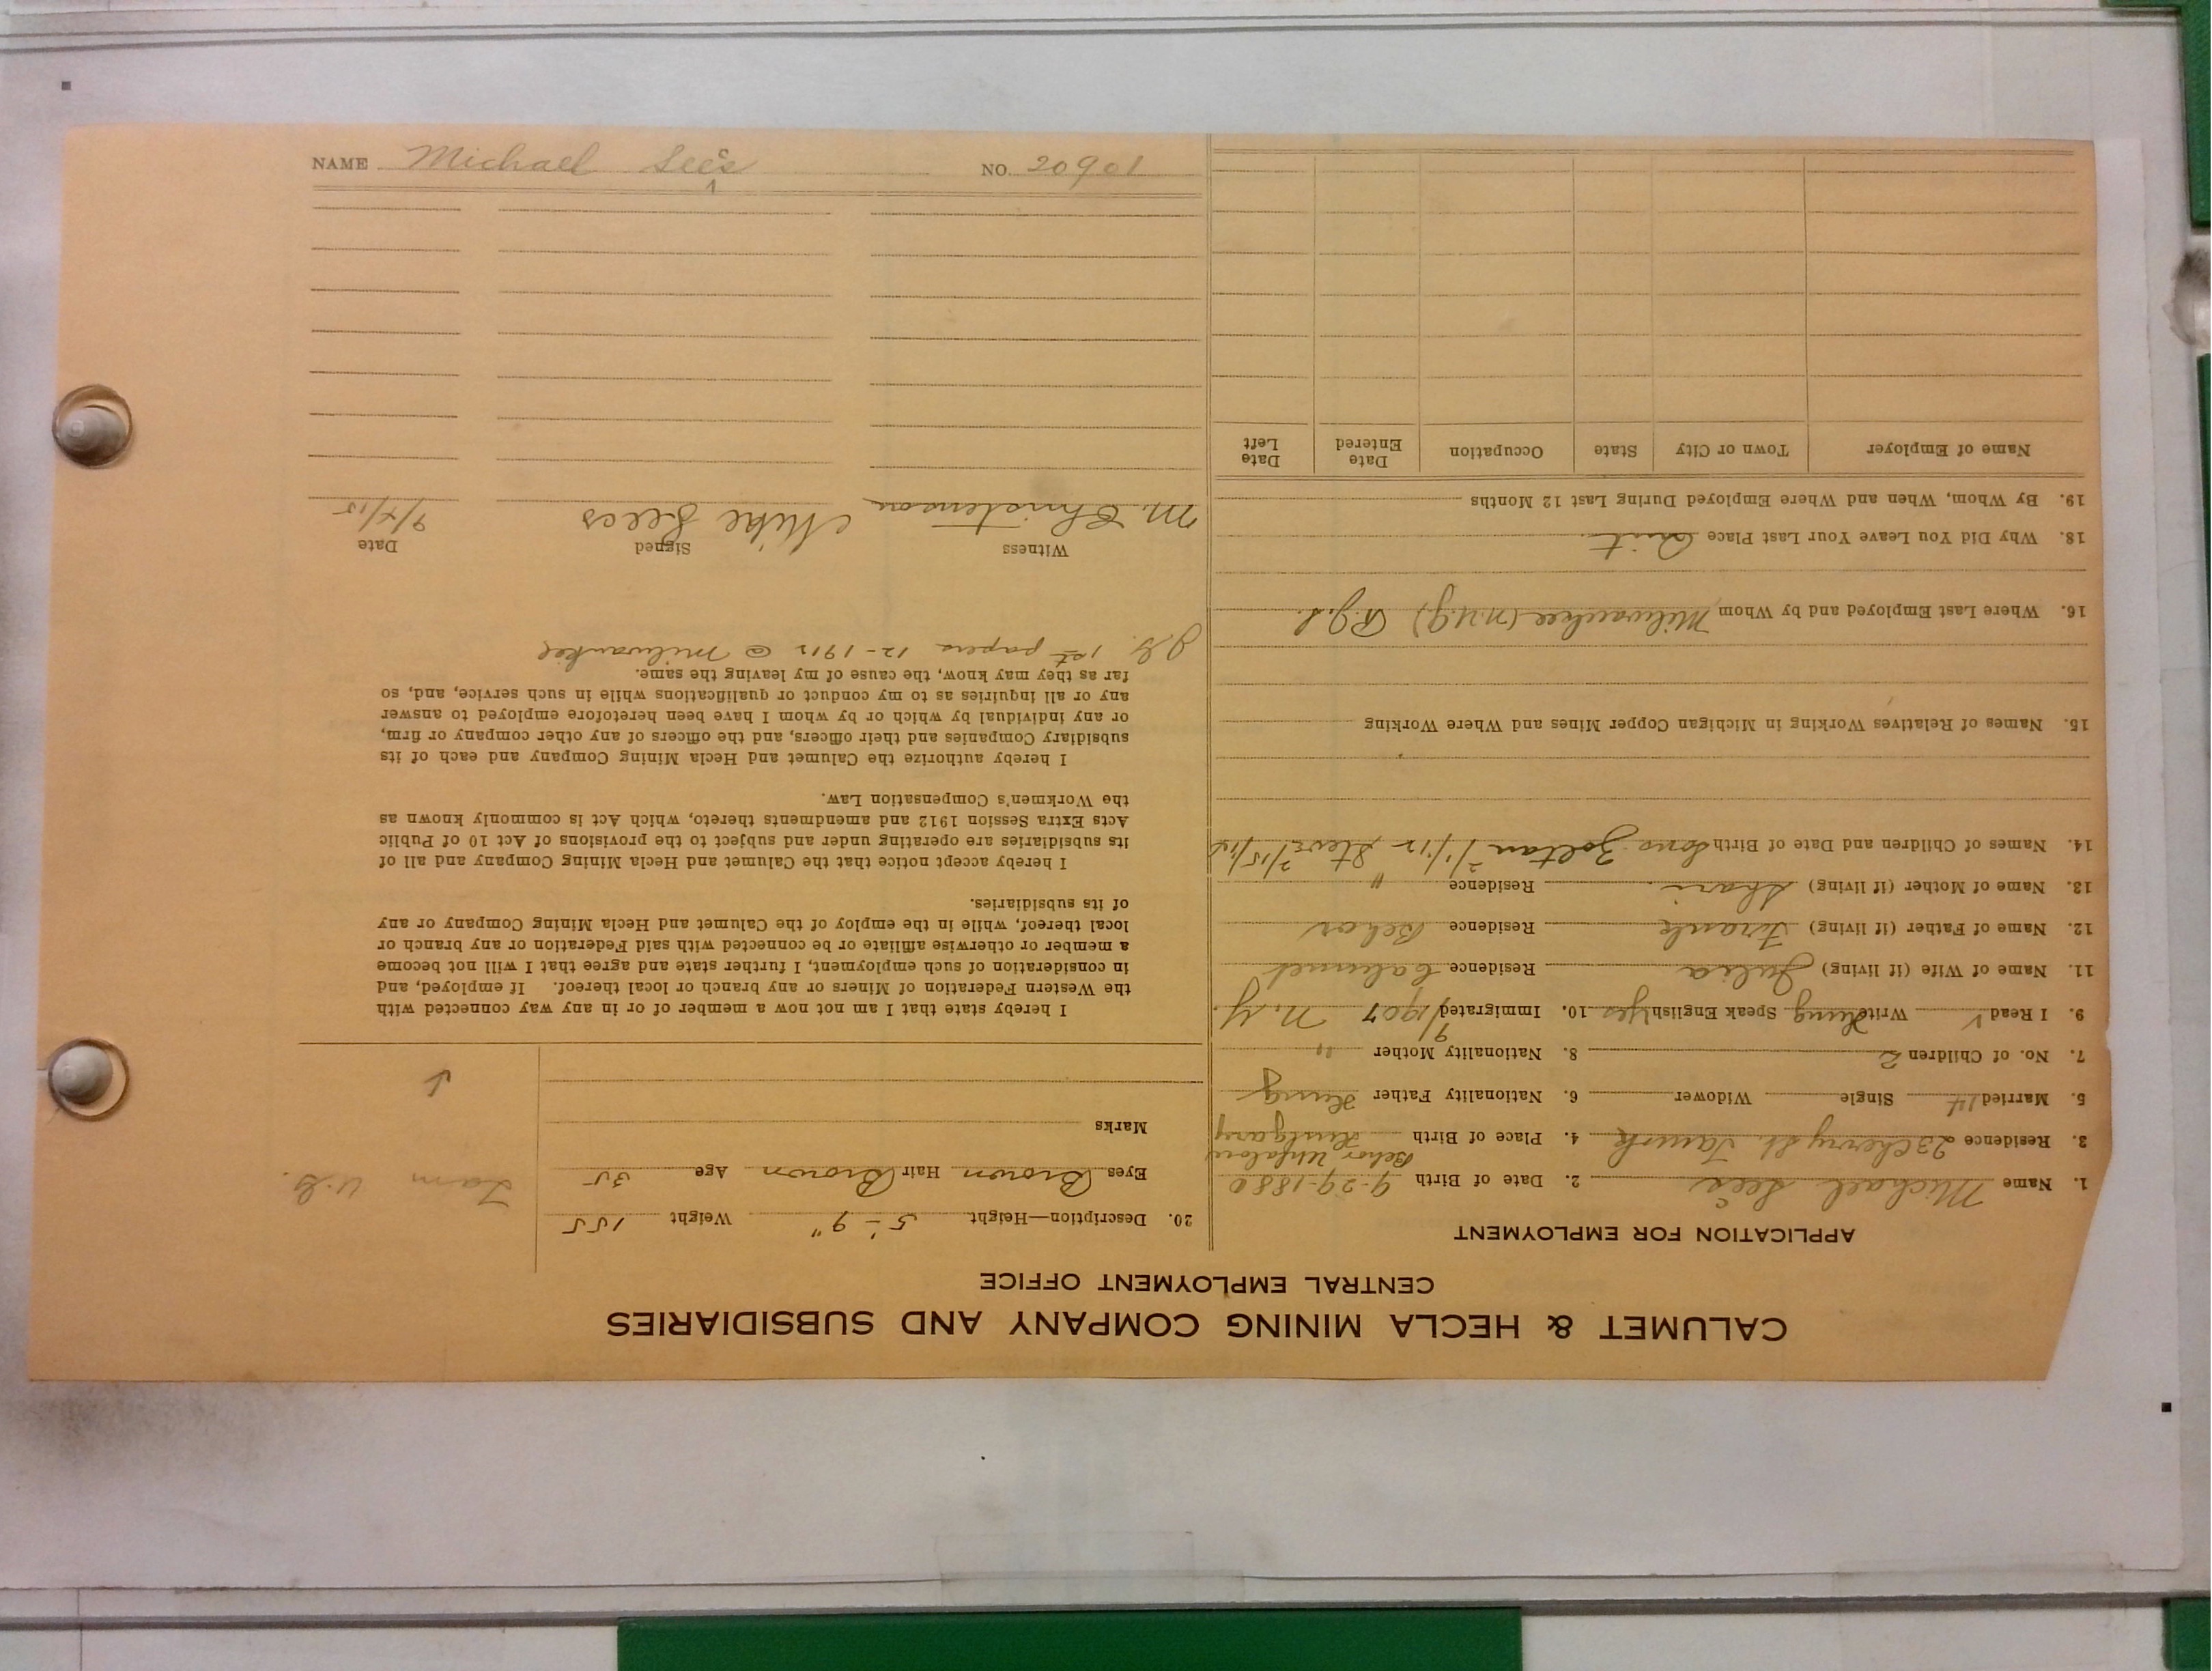 CALUMET & HECLA MINING COMPANY AND SUBSIDIARIES
CENTRAL EMPLOYMENT OFFICE
APPLICATION FOR EMPLOYMENT
1. Name Michael Sees 2. Date of Birth 9-29-1880
3. Residence 23 Cherry St. 4. Place of Birth Hungary
5. Married Single Widower 6. Nationality Father Hung
7. No. of Children 2 8. Nationality Mother "
9. I Read √ Write Hung Speak English yes 10. Immigrated 9/1907 N.Y.
11. Name of Wife (if living) Julia Residence Calumet
12. Name of Father (if living) Frank Residence Behor
13. Name of Mother (if living) Residence "
14. Names of Children and Date of Birth Sons Zoltan Steve
15. Names of Relatives Working in Michigan Copper Mines and Where Working
16. Where Last Employed and by Whom Milwaukee
18. Why Did You Leave Your Last Place Quit
19. By Whom, When and Where Employed During Last 12 Months
Name of Employer Town or City State Occupation Date Entered Date Left
20. Description—Height 5'-9" Weight 155
Eyes Brown Hair Brown Age 35
Marks
I hereby state that I am not now a member of or in any way connected with
the Western Federation of Miners or any branch or local thereof. If employed, and
in consideration of such employment, I further state and agree that I will not become
a member or otherwise affiliate or be connected with said Federation or any branch or
local thereof, while in the employ of the Calumet and Hecla Mining Company or any
of its subsidiaries.
I hereby accept notice that the Calumet and Hecla Mining Company and all of
its subsidiaries are operating under and subject to the provisions of Act 10 of Public
Acts Extra Session 1912 and amendments thereto, which Act is commonly known as
the Workmen's Compensation Law.
I hereby authorize the Calumet and Hecla Mining Company and each of its
subsidiary Companies and their officers, and the officers of any other company or firm,
or any individual by which or by whom I have been heretofore employed to answer
any or all inquiries as to my conduct or qualifications while in such service, and, so
far as they may know, the cause of my leaving the same.
1st papers 12-1912 @ Milwaukee
Witness Signed Date
M. Christenson Mike Seecs 9/4/15
NAME Michael Seecs NO. 20901